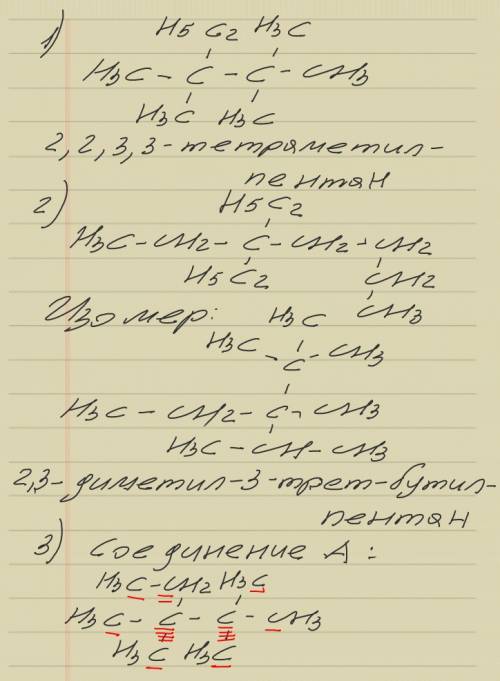 1)
H5C2 H3C
H3C - C - C - CH3
H3C H3C
2,2,3,3-тетраметил-
пентан
2)
H5C2
H3C-CH2-C-CH2-CH2
H5C2 CH2
Изомер: CH3
H3C
H3C - C - CH3
H3C - CH2 - C - CH3
H3C - CH - CH3
2,3-диметил-3-трет-бутил-
пентан
3) Соединение А:
H3C-CH2 H3C
H3C - C - C - CH3
H3C H3C